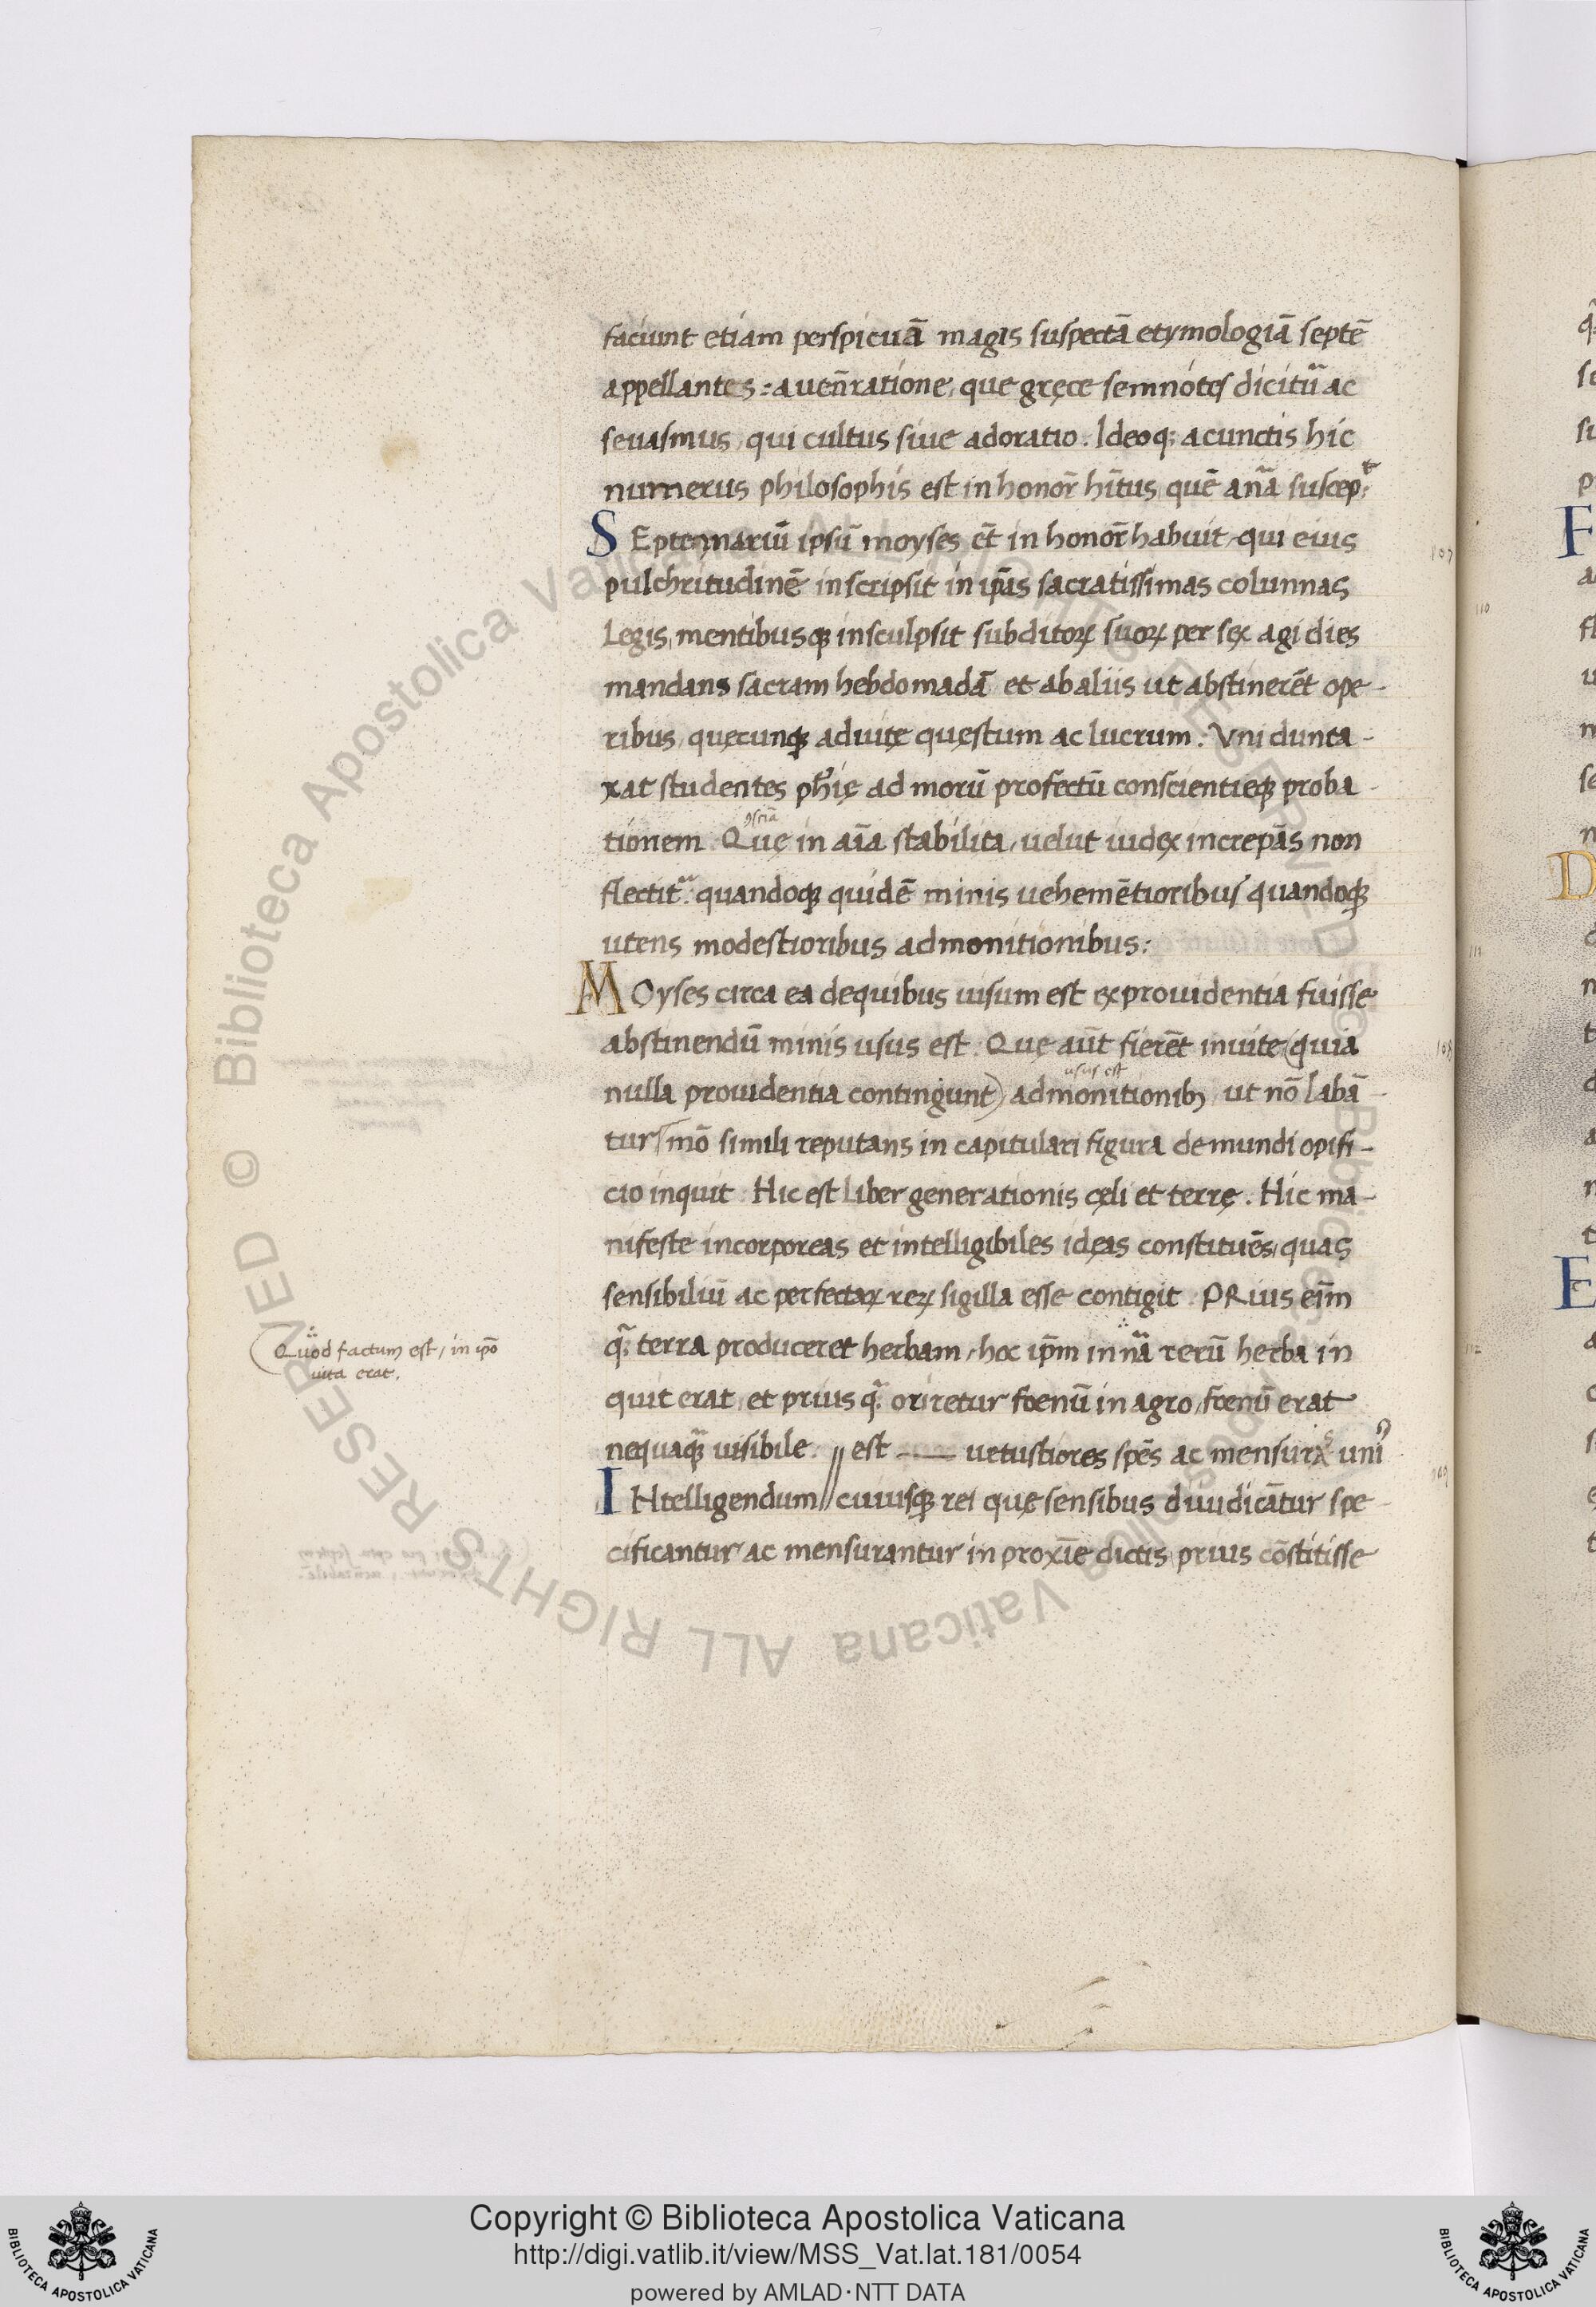 faciunt etiam perspicuā magis suspectā etymologiā septē
appellantes: a uen̄ratione, que gręce semnótes dicitũ ac
seuasmus, qui cultus siue adoratio. Ideoq; a cunctis hic
numerus philosophis est in honor̄ hītus, quē anā suscep:t
SEptemariū ipsū moyses ēt in honor̄ habuit, qui eius
pulchritudinē inscripsit in ip̄as sacratissimas colunnas
Legis, mentibusq; insculpsit subditoꝝ suoꝝ per sex agi dies
mandans sacram hebdomadā et ab aliis ut abstinerēt ope-
ribus, quęcunq; ad uitę quęstum ac lucrum. Vni dunta-
xat studentes ph̄ię ad morū profectū conscientięq; proba-
tionem. Quę in aīa stabilita, uelut iudex increpās non
ꝯsciā
flectit᷑. quandoq; quidē minis uehemētioribus quandoq;
utens modestioribus admonitionibus:
MOyses circa ea de quibus uisum est ex prouidentia fuisse
abstinendū minis usus est. Que aūt fierēt inuite (quia
nulla prouidentia contingunt) admonitionib; ut nō labā-
usus est
tur mō simili reputans in capitulari figura de mundi opifi-
cio inquit. Hic est Liber generationis cęli et terrę. Hic ma-
nifeste incorporeas et intelligibiles idęas constituēs, quas
sensibiliū ac perfectaꝝ reꝝ sigilla esse contigit. PRius eīm
q̃ terra produceret herbam, hoc ip̄m in nā rerū herba in
quit erat, et prius q̃ oriretur foenū in agro, foenū erat
nequaq̃ uisibile. // est —— uetustiores spēs ac mensuras uni9
INtelligendum // cuiusq; rei quę sensibus diiudicātur spe-
cificantur ac mensurantur in proxīe dictis prius cōstitisse
Quod factum est, in ipō
uita erat.
107
108
109
110
111
112
Copyright © Biblioteca Apostolica Vaticana
http://digi.vatlib.it/view/MSS_Vat.lat.181/0054
powered by AMLAD·NTT DATA
BIBLIOTECA APOSTOLICA VATICANA
BIBLIOTECA APOSTOLICA VATICANA
© Biblioteca Apostolica Vaticana ALL RIGHTS RESERVED
© Biblioteca Apostolica Vaticana ALL RIGHTS RESERVED